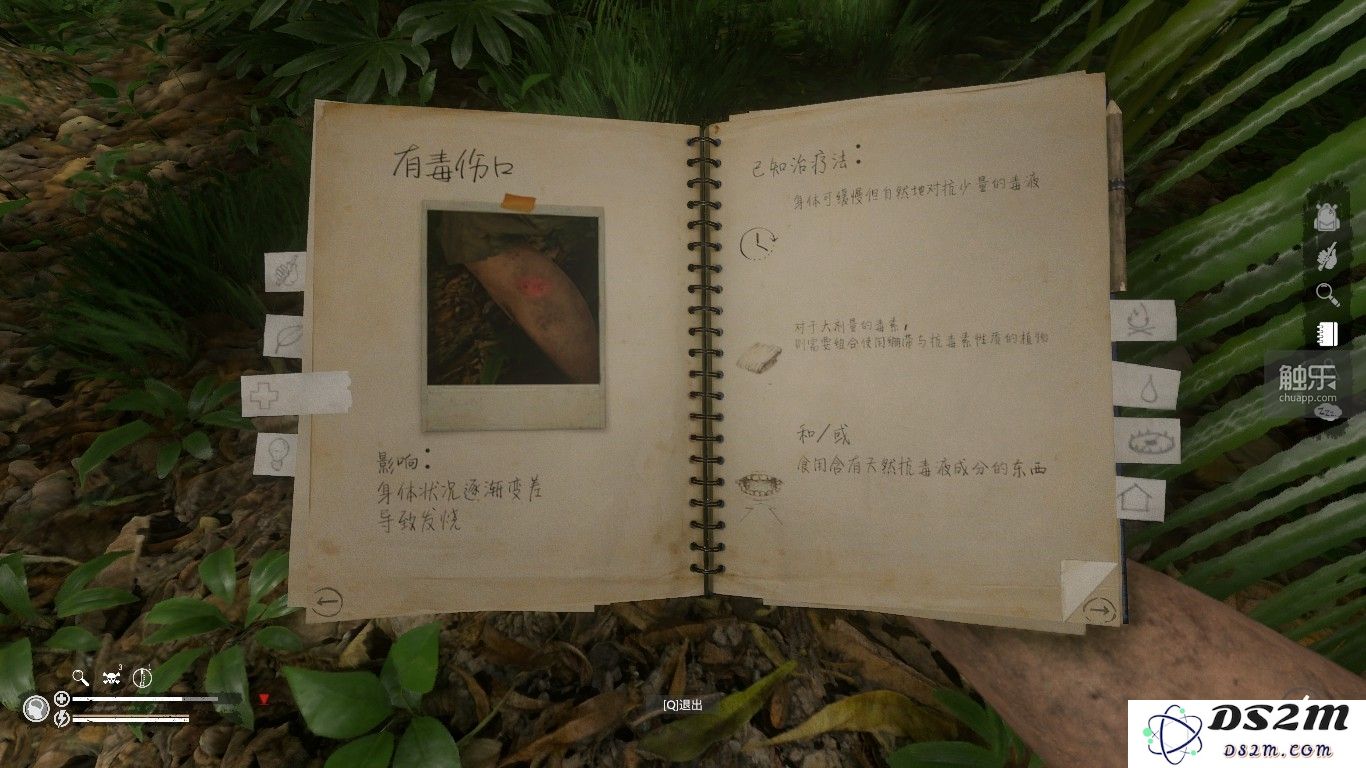 有毒伤口
影响：
身体状况逐渐变差
导致发烧
已知治疗法：
身体可缓慢但自然地对抗少量的毒液
对于大剂量的毒素，
则需要组合使用绷带与抗毒素性质的植物
和/或
食用含有天然抗毒液成分的东西
触乐
chuapp.com
zzz
3
[Q]退出
DS2M
DS2M.COM